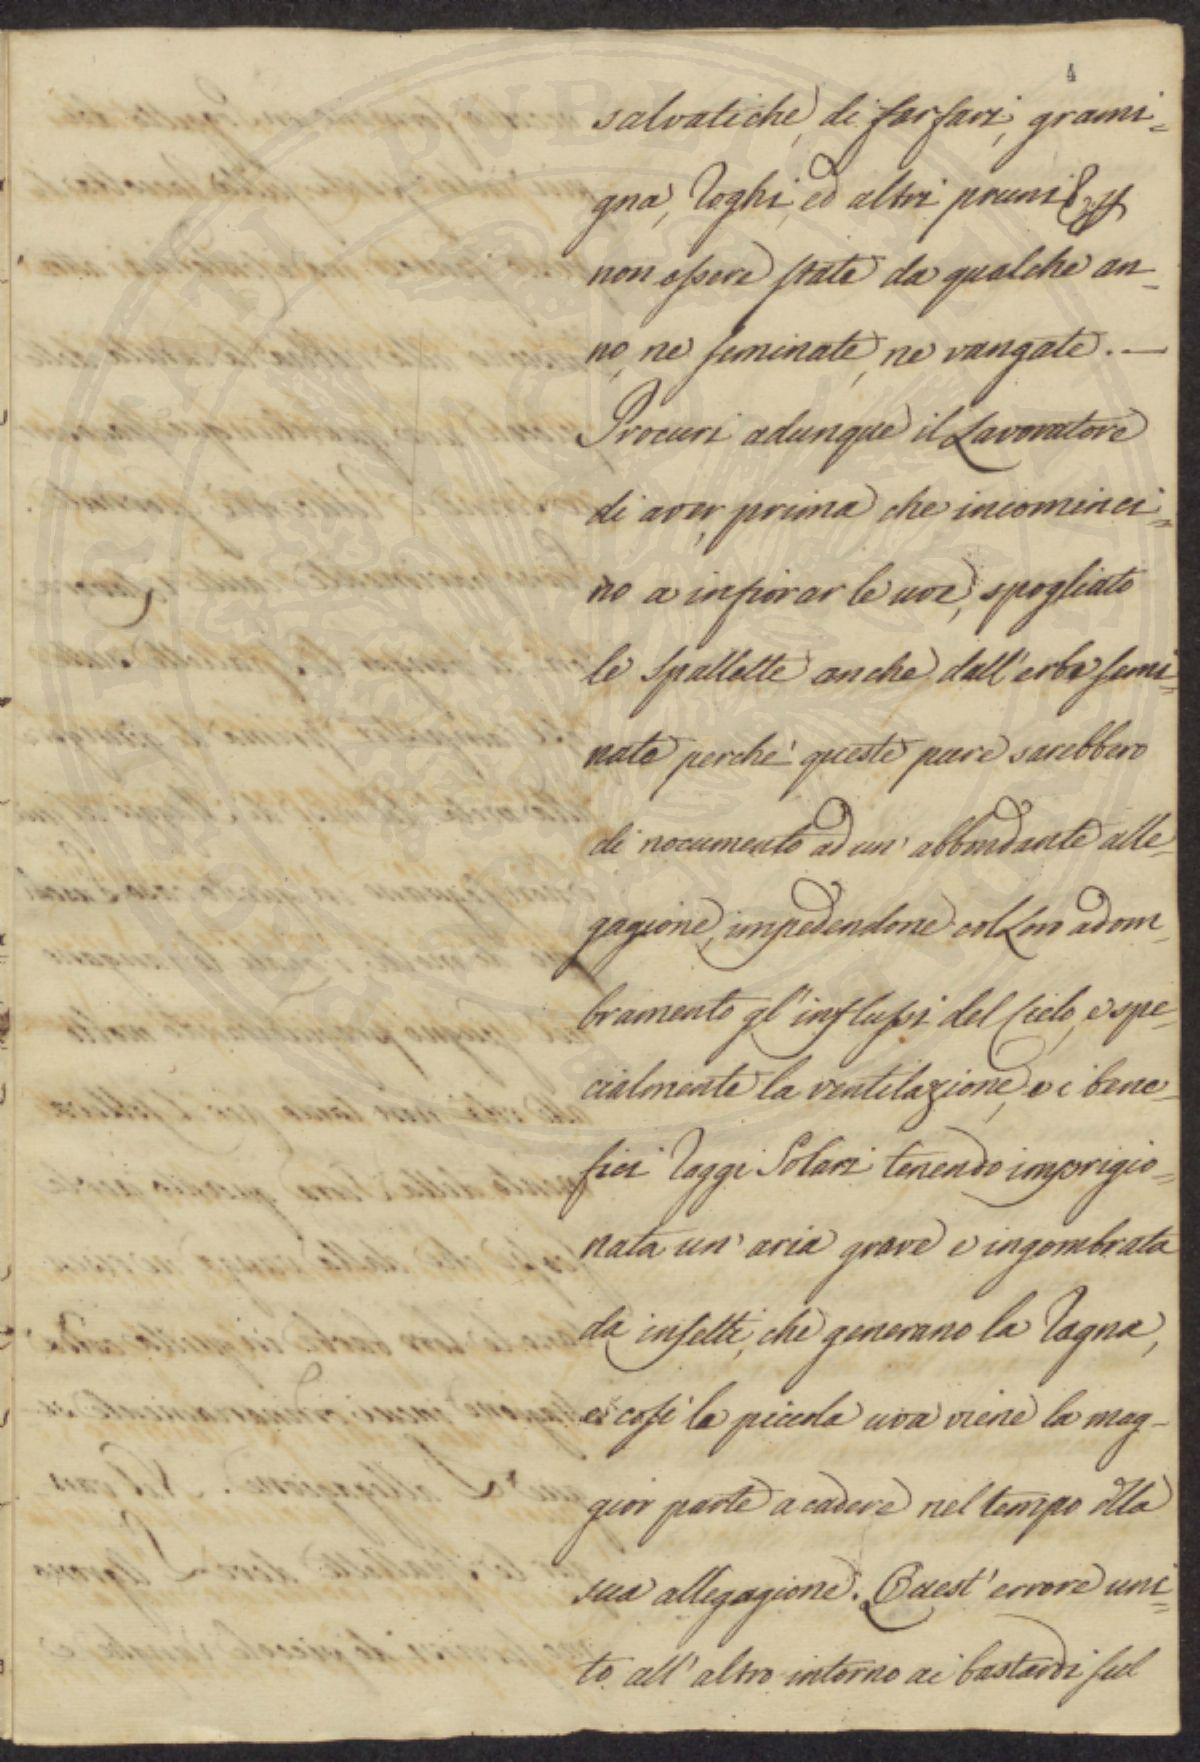 4
salvatiche, di farfari, grami=
gna, Roghi, ed altri pruni p
non essere state da qualche an=
no, ne seminate, ne vangate. —
Procuri adunque il Lavoratore
di aver, prima che incominci=
no a infiorar le uve, spogliato
le spallette anche dall'erbe semi=
nate perche' queste pure sarebbero
di nocumento ad un' abbondante alle=
gagione, impedendone col Loro adom=
bramento gl'influssi del Cielo, e spe=
cialmente la ventilazione, e i bene=
fici Raggi Solari tenendo imprigio=
nata un' aria grave e ingombrata
da insetti, che generano la Ragna,
e cosi la piccola uva viene la mag=
gior parte a cadere nel tempo dlla
sua allegagione. Quest' errore uni=
to all' altro intorno ai bastardi sul